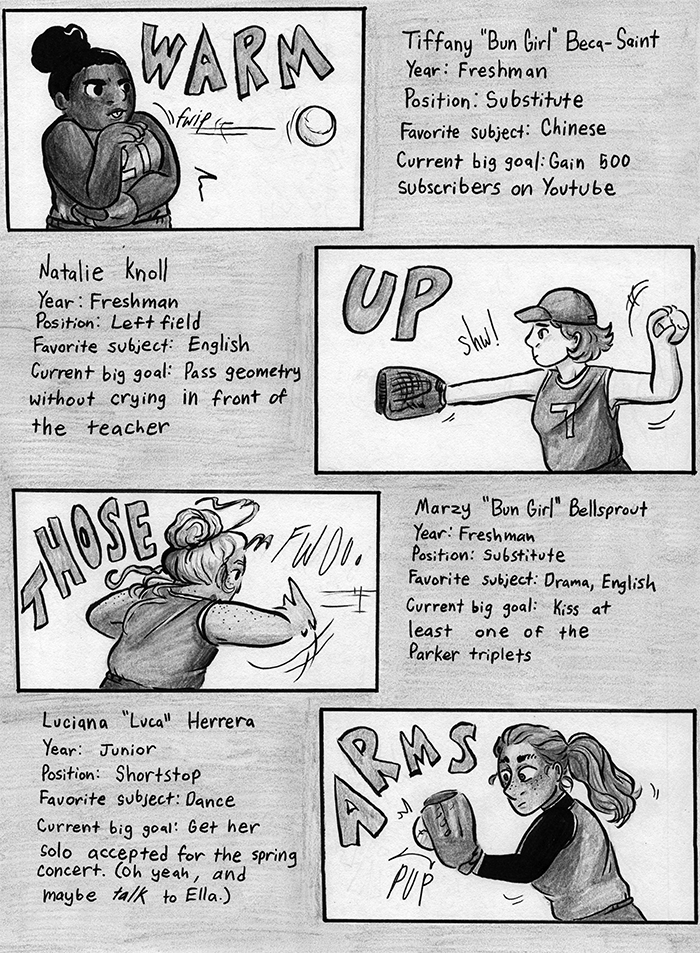 WARM
fwip
21
Tiffany "Bun Girl" Beca-Saint
Year: Freshman
Position: Substitute
Favorite subject: Chinese
Current big goal: Gain 500
subscribers on Youtube
Natalie Knoll
Year: Freshman
Position: Left field
Favorite subject: English
Current big goal: Pass geometry
without crying in front of
the teacher
UP
shw!
7
THOSE
FWOO.
Marzy "Bun Girl" Bellsprout
Year: Freshman
Position: Substitute
Favorite subject: Drama, English
Current big goal: Kiss at
least one of the
Parker triplets
Luciana "Luca" Herrera
Year: Junior
Position: Shortstop
Favorite subject: Dance
Current big goal: Get her
solo accepted for the spring
concert. (Oh yeah, and
maybe talk to Ella.)
ARMS
PUP